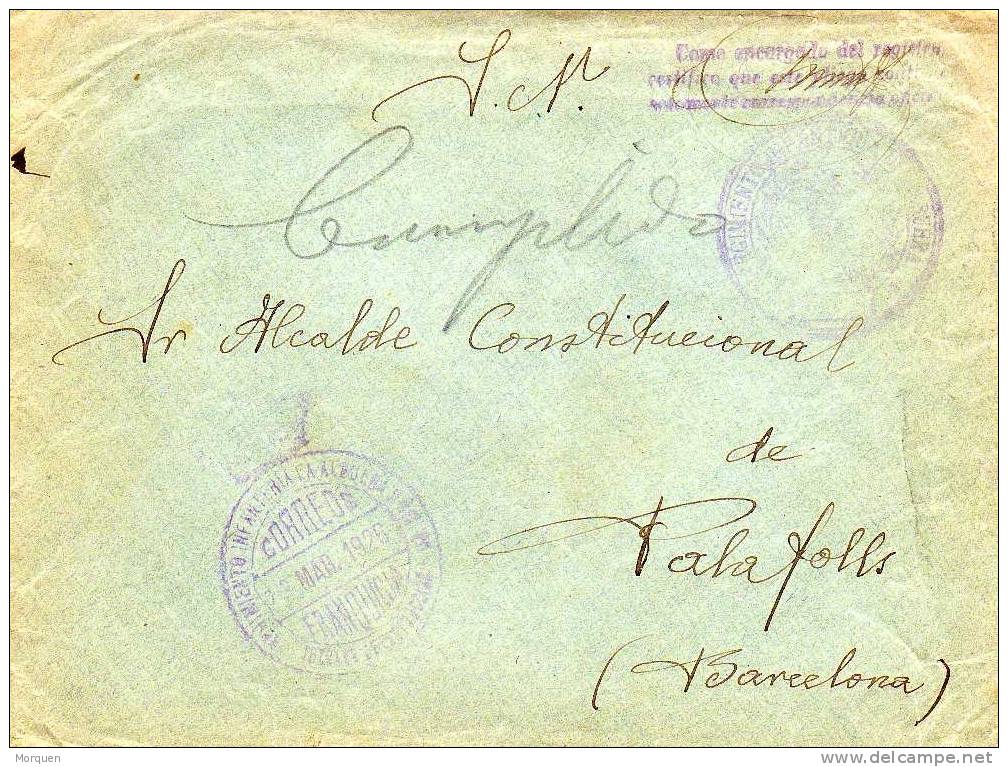 S. N.
Como encargado del registro
certifico que este
Cumplido
Sr Alcalde Constitucional
de
Palafolls
(Barcelona)
INFANTERIA LA ALBUERA
CORREOS
MAR. 19
FRANQUICIA
Morquen
www.delcampe.net